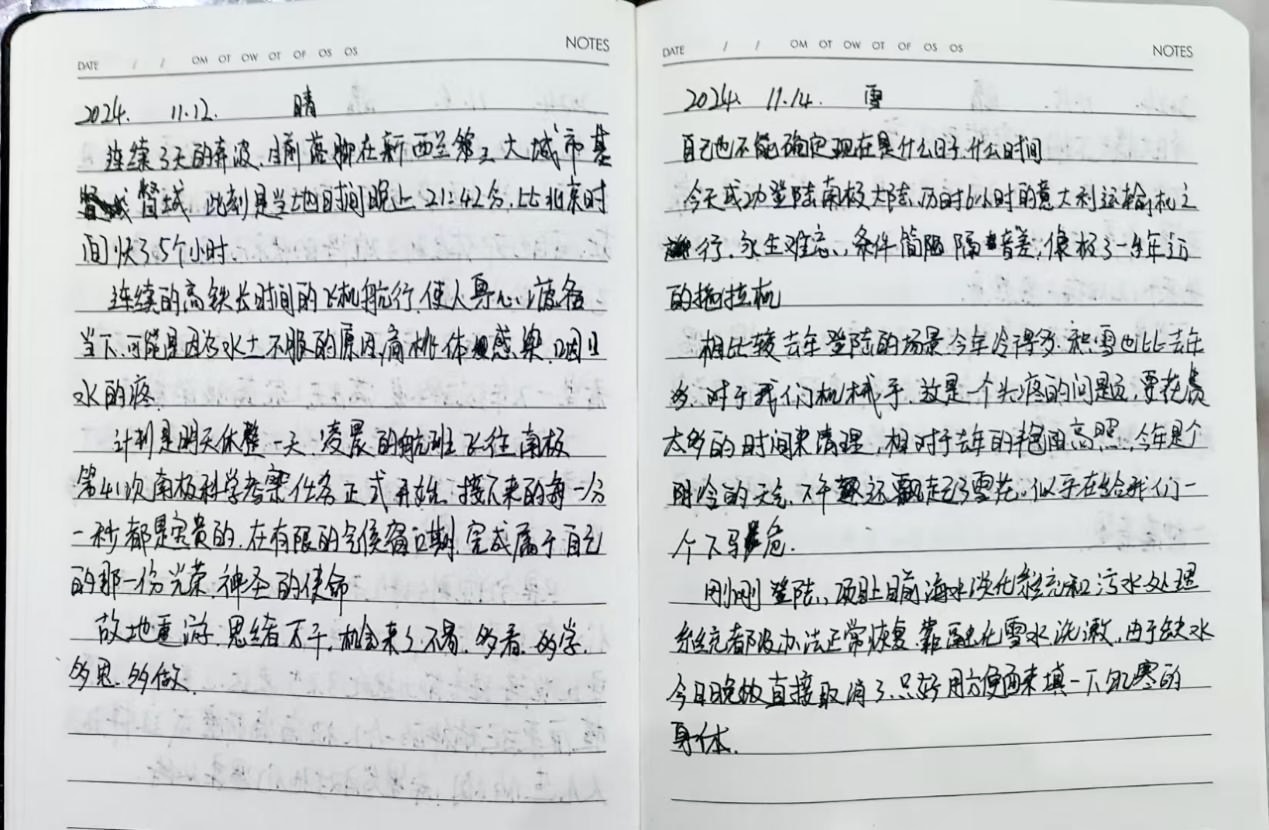 DATE / / OM OT OW OT OF OS OS NOTES
2024. 11.12. 晴
连续3天的奔波,目前落脚在新西兰第二大城市基
督城,此刻是当地时间晚上21:42分,比北京时
间快了5个小时.
连续的高铁长时间的飞机航行,使人身心疲惫
当下,可能是因为水土不服的原因,扁桃体感染,咽口
水的疼.
计划是明天休整一天,凌晨的航班飞往南极
第41次南极科学考察任务正式开始,接下来的每一分
一秒都是宝贵的,在有限的气候窗口期,完成属于自己
的那一份光荣、神圣的使命
故地重游,思绪万千,机会来之不易,多看、多学、
多思、多做.
DATE / / OM OT OW OT OF OS OS NOTES
2024. 11.14. 雪
自己也不能确定现在是什么日子,什么时间
今天成功登陆南极大陆,历时6小时的意大利运输机之
行,永生难忘,条件简陋隔音差,像极了一年迈
的拖拉机
相比较去年登陆的场景今年冷得多,积雪也比去年
多,对于我们机械手,这是一个头疼的问题,要花费
太多的时间来清理,相对于去年的艳阳高照,今年是个
阴冷的天气,不还飘起了雪花,似乎在给我们一
个下马危.
刚刚登陆,项目前海水淡化系统和污水处理
系统都没办法正常恢复,靠融化雪水洗漱,由于缺水
今日晚饭直接取消了,只好用方便面来填一下饥寒的
身体.